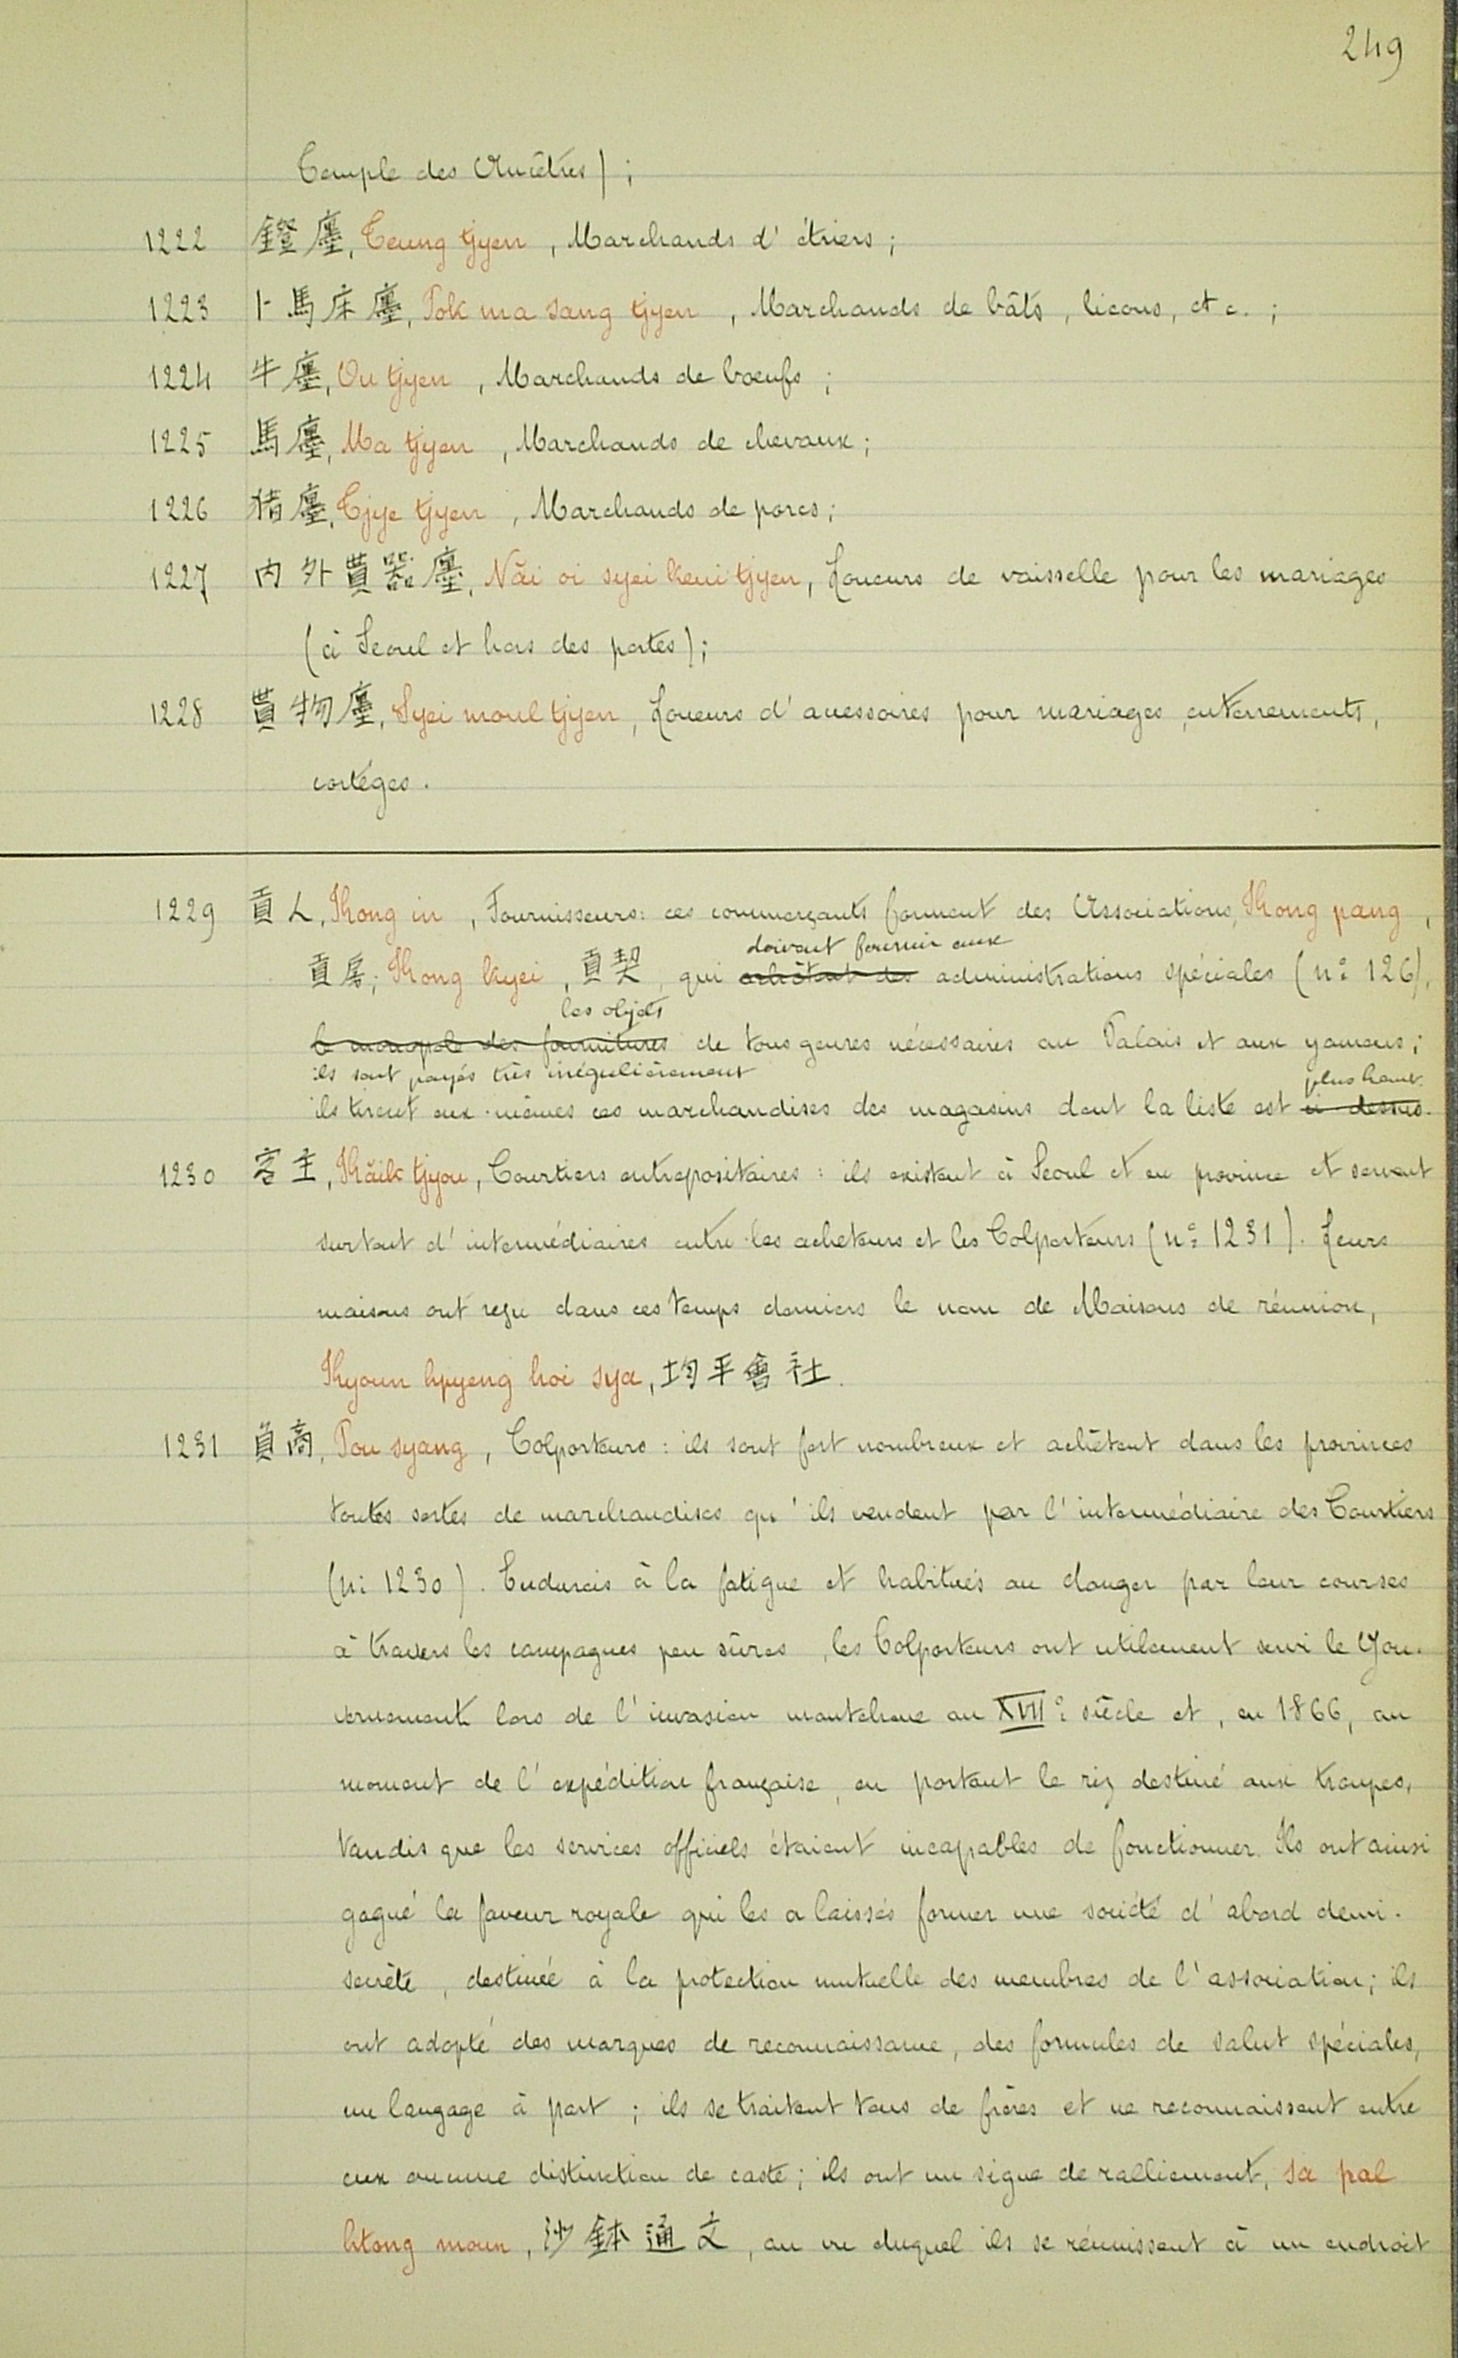 249
Temple des Ancêtres) ;
1222 鐙廛, Teung tjyen, Marchands d'étriers ;
1223 卜馬床廛, Pok ma sang tjyen, Marchands de bâts, licous, etc. ;
1224 牛廛, Ou tjyen, Marchands de bœufs ;
1225 馬廛, Ma tjyen, Marchands de chevaux ;
1226 猪廛, Tjye tjyen, Marchands de porcs ;
1227 内外貰器廛, Năi oi syei keui tjyen, Loueurs de vaisselle pour les mariages
(à Seoul et hors des portes) ;
1228 貰物廛, Syei moul tjyen, Loueurs d'accessoires pour mariages, enterrements,
cortéges.
1229 貢人, Kong in, Fournisseurs : ces commerçants forment des Associations, Kong pang,
doivent fournir aux
貢房; Kong kyei, 貢契, qui achètent des administrations spéciales (nº 126),
les objets
le monopole des fournitures de tous genres nécessaires au Palais et aux yamens ;
ils sont payés très irrégulièrement
plus haut.
ils tirent eux-mêmes ces marchandises des magasins dont la liste est ci-dessus.
1230 客主, Kăik tjyou, Courtiers entrepositaires : ils existent à Seoul et en province et servent
surtout d'intermédiaires entre les acheteurs et les Colporteurs (nº 1231). Leurs
maisons ont reçu dans ces temps derniers le nom de Maisons de réunion,
Kyoun hpyeng hoi sya, 均平會社.
1231 負商, Pou syang, Colporteurs : ils sont fort nombreux et achètent dans les provinces
toutes sortes de marchandises qu'ils vendent par l'intermédiaire des Courtiers
(nº 1230). Endurcis à la fatigue et habitués au danger par leur courses
à travers les campagnes peu sûres, les Colporteurs ont utilement servi le Gou-
vernement lors de l'invasion mantchoue au XVIIº siècle et, en 1866, au
moment de l'expédition française, en portant le riz destiné aux troupes,
tandis que les services officiels étaient incapables de fonctionner. Ils ont ainsi
gagné la faveur royale qui les a laissés former une société d'abord demi-
secrète, destinée à la protection mutuelle des membres de l'association ; ils
ont adopté des marques de reconnaissance, des formules de salut spéciales,
un langage à part ; ils se traitent tous de frères et ne reconnaissent entre
eux aucune distinction de caste ; ils ont un signe de ralliement, sa pal
htong moun, 沙鉢通文, au vu duquel ils se réunissent à un endroit